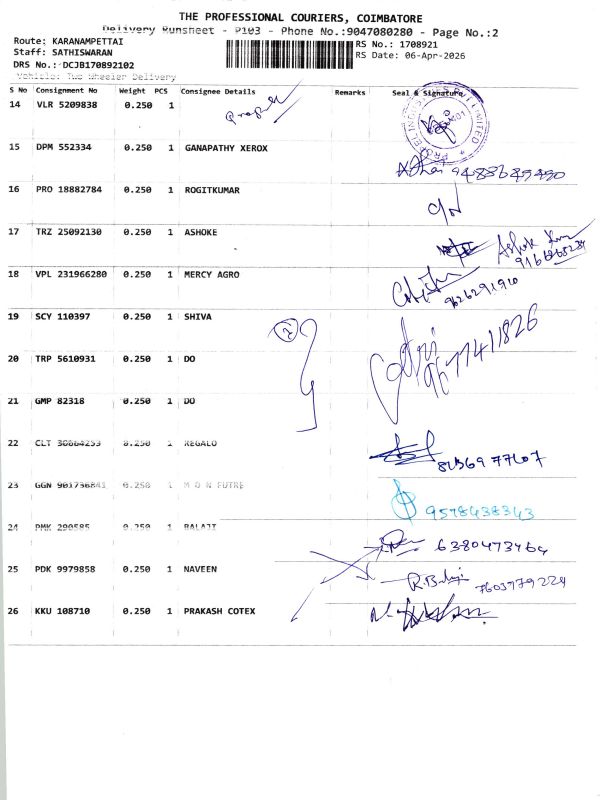 THE PROFESSIONAL COURIERS, COIMBATORE
Delivery Runsheet - P103 - Phone No.:9047080280 - Page No.:2
Route: KARANAMPETTAI
RS No.: 1708921
Staff: SATHISWARAN
RS Date: 06-Apr-2026
DRS No.: DCJB170892102
Vehicle: Two Wheeler Delivery
S No Consignment No Weight PCS Consignee Details Remarks Seal & Signature
14 VLR 5209838 0.250 1
15 DPM 552334 0.250 1 GANAPATHY XEROX
16 PRO 18882784 0.250 1 ROGITKUMAR
17 TRZ 25092130 0.250 1 ASHOKE
18 VPL 231966280 0.250 1 MERCY AGRO
9626291910
19 SCY 110397 0.250 1 SHIVA
9677411826
20 TRP 5610931 0.250 1 DO
21 GMP 82318 0.250 1 DO
22 CLT 30864253 0.250 1 REGALO
23 GGN 901736841 0.250 1 M D N FUTRE
9578438343
24 PMK 290585 0.250 1 BALAJI
6380473464
25 PDK 9979858 0.250 1 NAVEEN
R. Balaji 7603779224
26 KKU 108710 0.250 1 PRAKASH COTEX